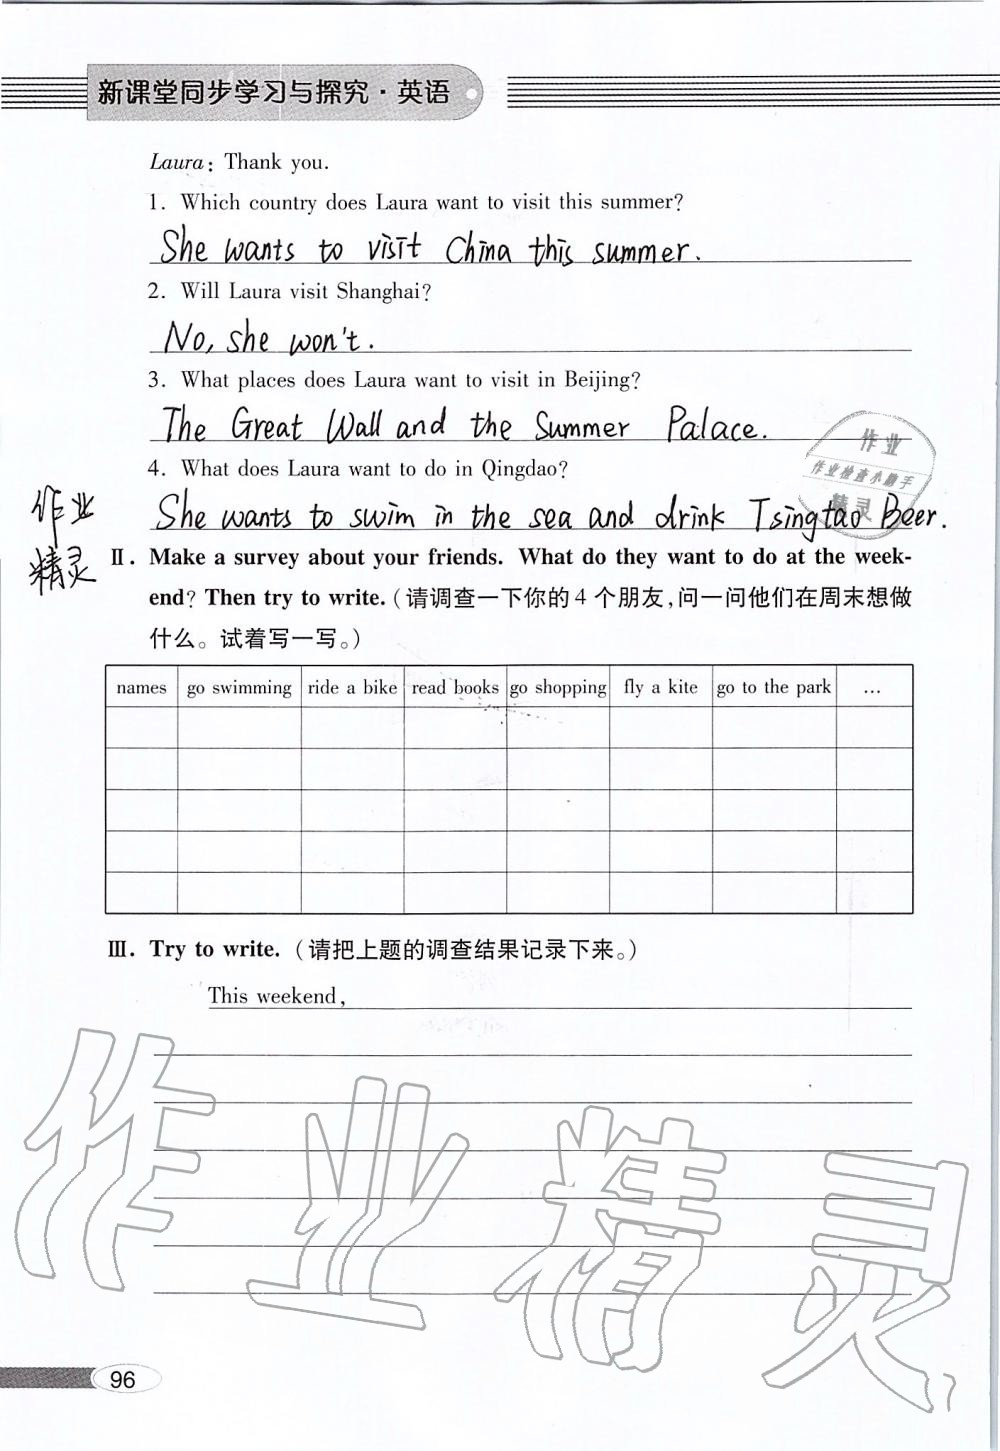 新课堂同步学习与探究·英语
Laura: Thank you.
1. Which country does Laura want to visit this summer?
She wants to visit China this summer.
2. Will Laura visit Shanghai?
No, she won't.
3. What places does Laura want to visit in Beijing?
The Great Wall and the Summer Palace.
作业
作业检查小助手
精灵
4. What does Laura want to do in Qingdao?
She wants to swim in the sea and drink Tsingtao Beer.
作业
精灵
Ⅱ. Make a survey about your friends. What do they want to do at the week-
end? Then try to write.(请调查一下你的4个朋友,问一问他们在周末想做
什么。试着写一写。)
names go swimming ride a bike read books go shopping fly a kite go to the park ...
Ⅲ. Try to write.(请把上题的调查结果记录下来。)
This weekend,
作业精灵
96